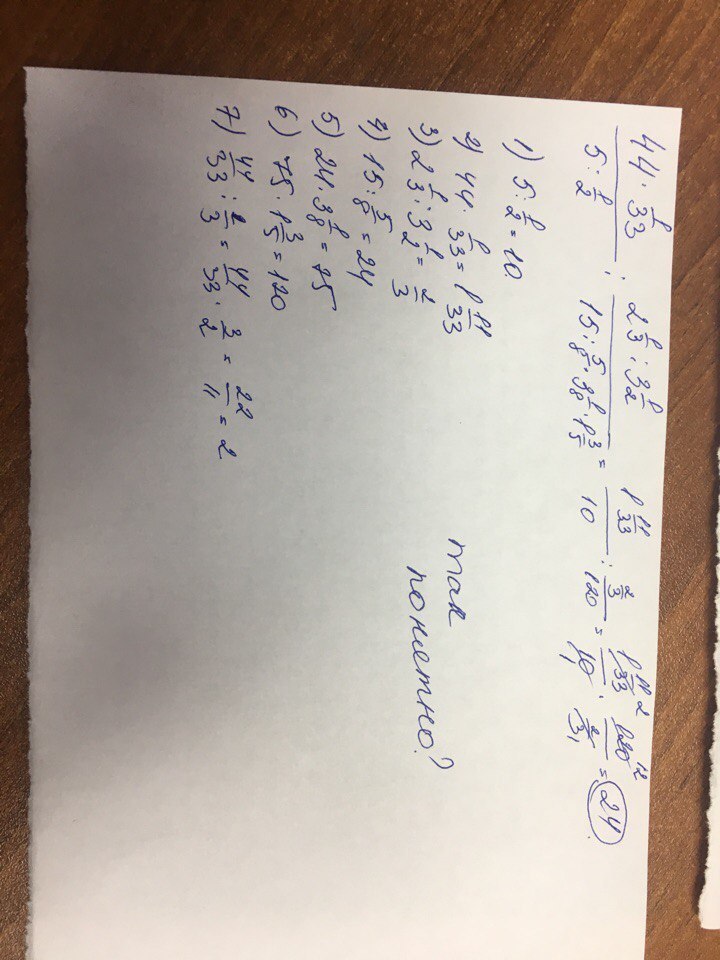 (44 · 1/33)/(5 : 1/2) : (2 1/3 : 3 1/2)/(15 : 5/8 · 3 1/8 · 1 3/5) = (1 11/33)/10 : (2/3)/120 = (1 11/33)/10 · 120/(2/3) = 24.
1) 5 : 1/2 = 10
2) 44 · 1/33 = 1 11/33
3) 2 1/3 : 3 1/2 = 2/3
4) 15 : 5/8 = 24
5) 24 · 3 1/8 = 75
6) 75 · 1 3/5 = 120
7) 44/33 : 2/3 = 44/33 · 3/2 = 22/11 = 2
так
понятно?